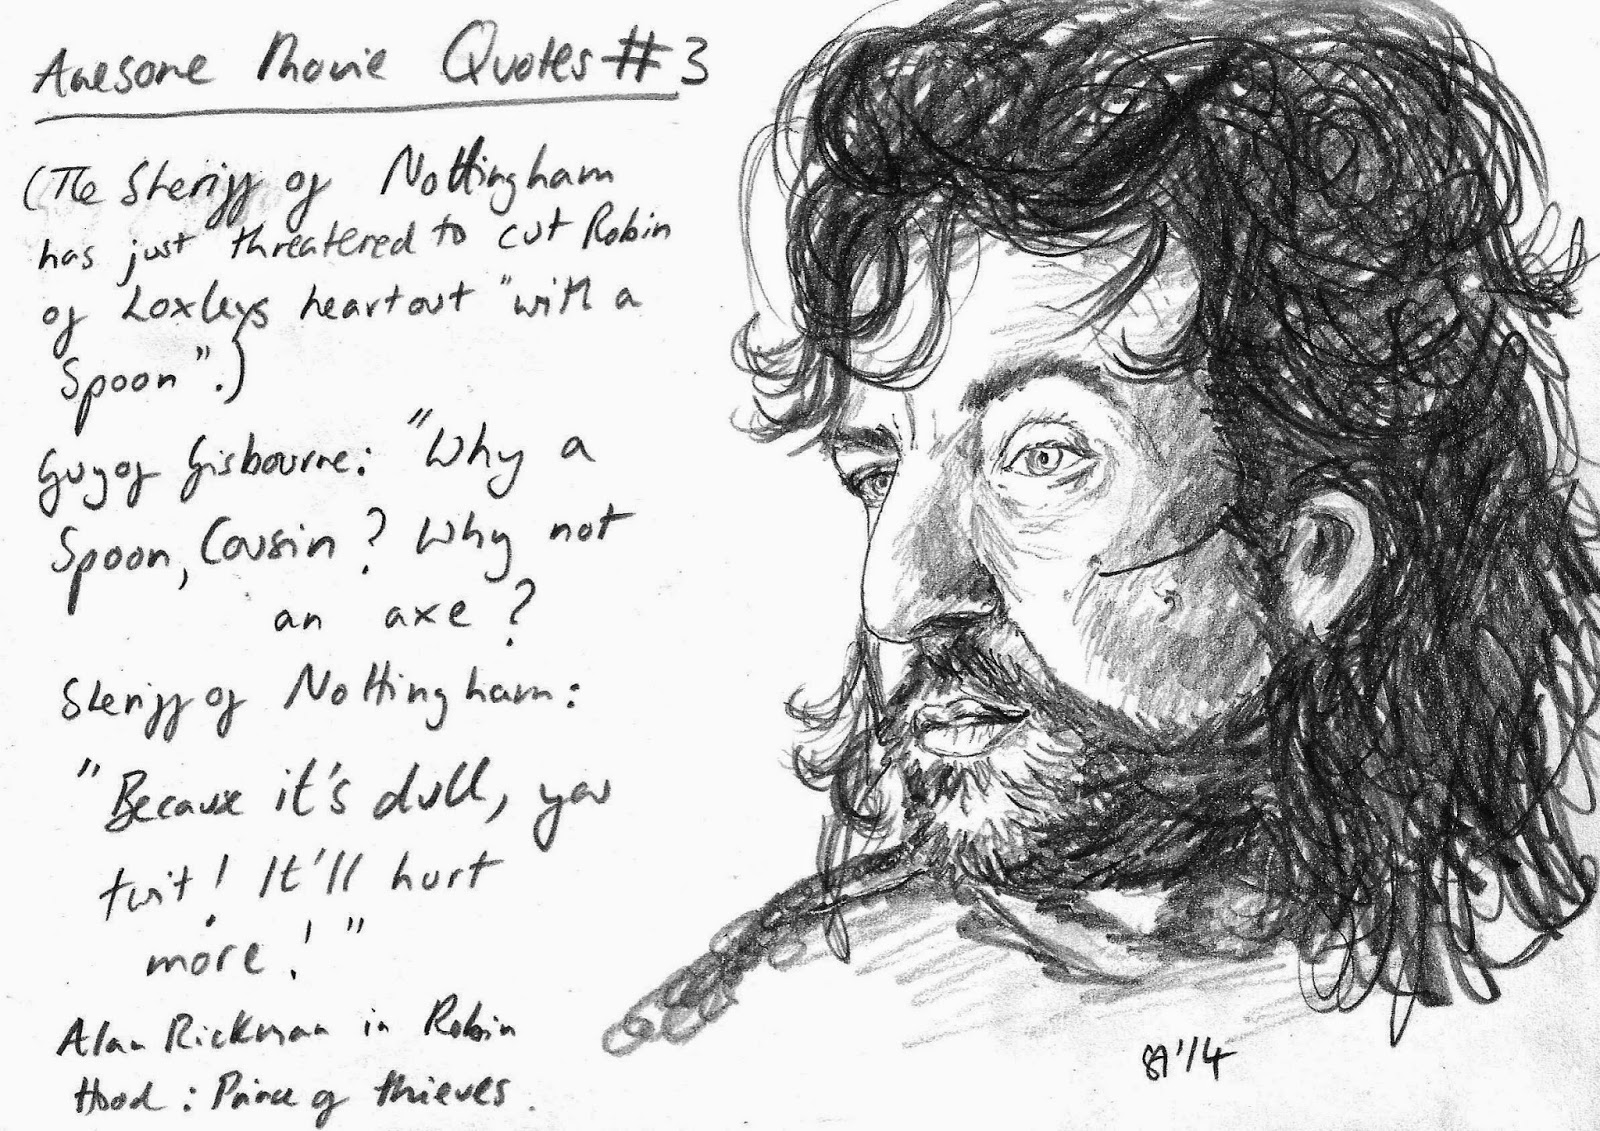 Awesome Movie Quotes #3
(The Sheriff of Nottingham
has just threatened to cut Robin
of Loxleys heart out "with a
Spoon".)
Guy of Gisbourne: "Why a
Spoon, Cousin? Why not
an axe?
Sheriff of Nottingham:
"Because it's dull, you
twit! It'll hurt
more!"
Alan Rickman in Robin
Hood: Prince of Thieves.
SA '14